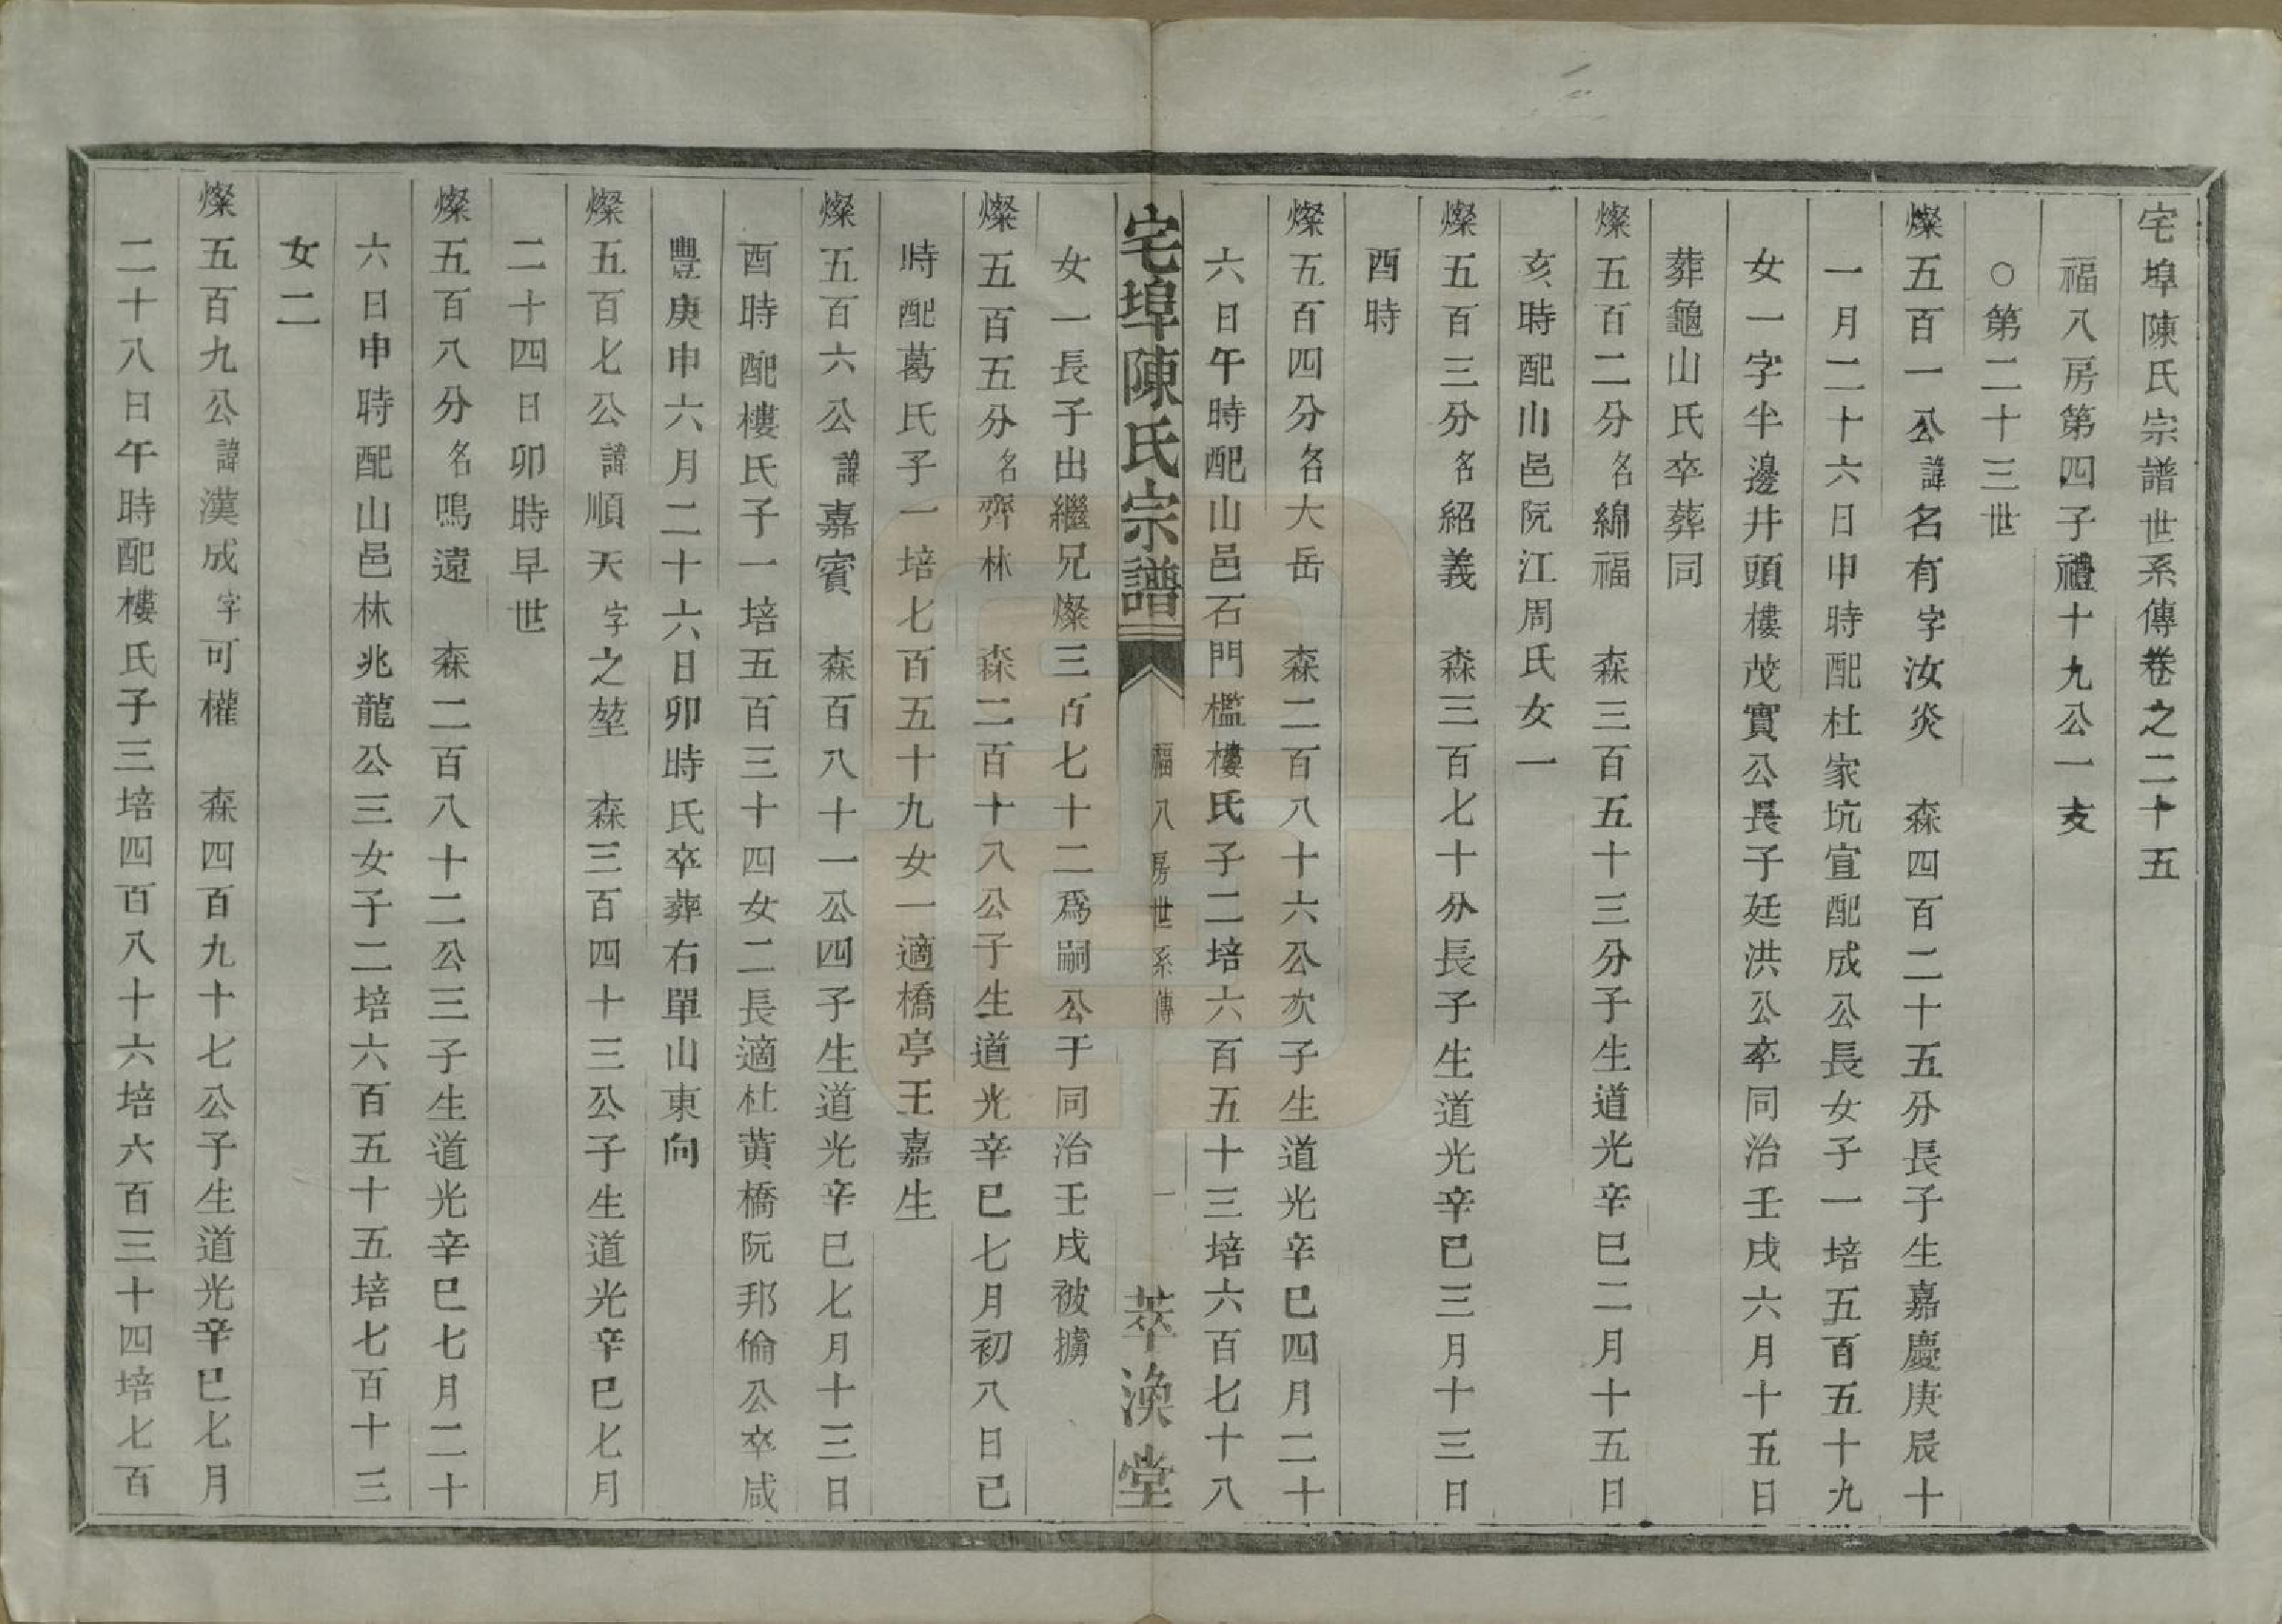 宅埠陳氏宗譜世系傳卷之二十五
福八房第四子禮十九公一支
○第二十三世
燦五百一公諱名有字汝炎　森四百二十五分長子生嘉慶庚辰十
一月二十六日申時配杜家坑宣配成公長女子一培五百五十九
女一字半邊井頭樓茂實公長子廷洪公卒同治壬戌六月十五日
葬龜山氏卒葬同
燦五百二分名綿福　森三百五十三分子生道光辛巳二月十五日
亥時配山邑阮江周氏女一
燦五百三分名紹義　森三百七十分長子生道光辛巳三月十三日
酉時
燦五百四分名大岳　森二百八十六公次子生道光辛巳四月二十
六日午時配山邑石門檻樓氏子二培六百五十三培六百七十八
宅埠陳氏宗譜　福八房世系傳　一　萃渙堂
女一長子出繼兄燦三百七十二爲嗣公于同治壬戌被擄
燦五百五分名齊林　森二百十八公子生道光辛巳七月初八日巳
時配葛氏子一培七百五十九女一適橋亭王嘉生
燦五百六公諱嘉賓　森百八十一公四子生道光辛巳七月十三日
酉時配樓氏子一培五百三十四女二長適杜黄橋阮邦倫公卒咸
豐庚申六月二十六日卯時氏卒葬右單山東向
燦五百七公諱順天字之堃　森三百四十三公子生道光辛巳七月
二十四日卯時早世
燦五百八分名鳴遠　森二百八十二公三子生道光辛巳七月二十
六日申時配山邑林兆龍公三女子二培六百五十五培七百十三
女二
燦五百九公諱漢成字可權　森四百九十七公子生道光辛巳七月
二十八日午時配樓氏子三培四百八十六培六百三十四培七百